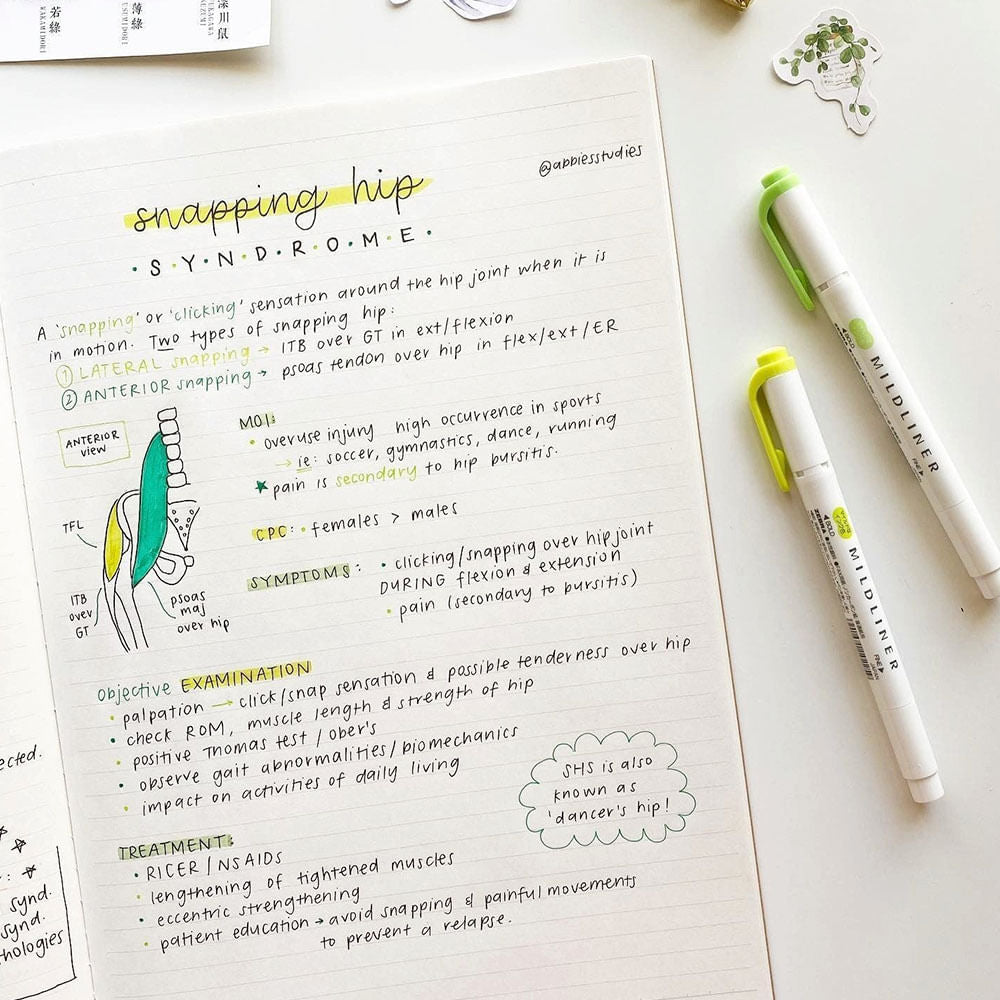 深川鼠
薄緑
USUMIDORI
若緑
WAKAMIDORI
@abbiesstudies
snapping hip
SYNDROME
A 'snapping' or 'clicking' sensation around the hip joint when it is
in motion. Two types of snapping hip:
① LATERAL snapping → ITB over GT in ext/flexion
② ANTERIOR snapping → psoas tendon over hip in flex/ext/ER
ANTERIOR
view
TFL
ITB
over
GT
psoas
maj
over hip
MOI:
• overuse injury high occurrence in sports
→ ie: soccer, gymnastics, dance, running
★ pain is secondary to hip bursitis.
CPC: • females > males
SYMPTOMS: • clicking/snapping over hip joint
DURING flexion & extension
• pain (secondary to bursitis)
Objective EXAMINATION
• palpation → click/snap sensation & possible tenderness over hip
• check ROM, muscle length & strength of hip
• positive Thomas test / ober's
• observe gait abnormalities/biomechanics
• impact on activities of daily living
SHS is also
known as
'dancer's hip!
TREATMENT:
• RICER/NSAIDS
• lengthening of tightened muscles
• eccentric strengthening
• patient education → avoid snapping & painful movements
to prevent a relapse.
ected.
synd.
synd.
hologies
BOLD MILDLINER FINE
BOLD MILDLINER FINE
ZEBRA
JAPAN